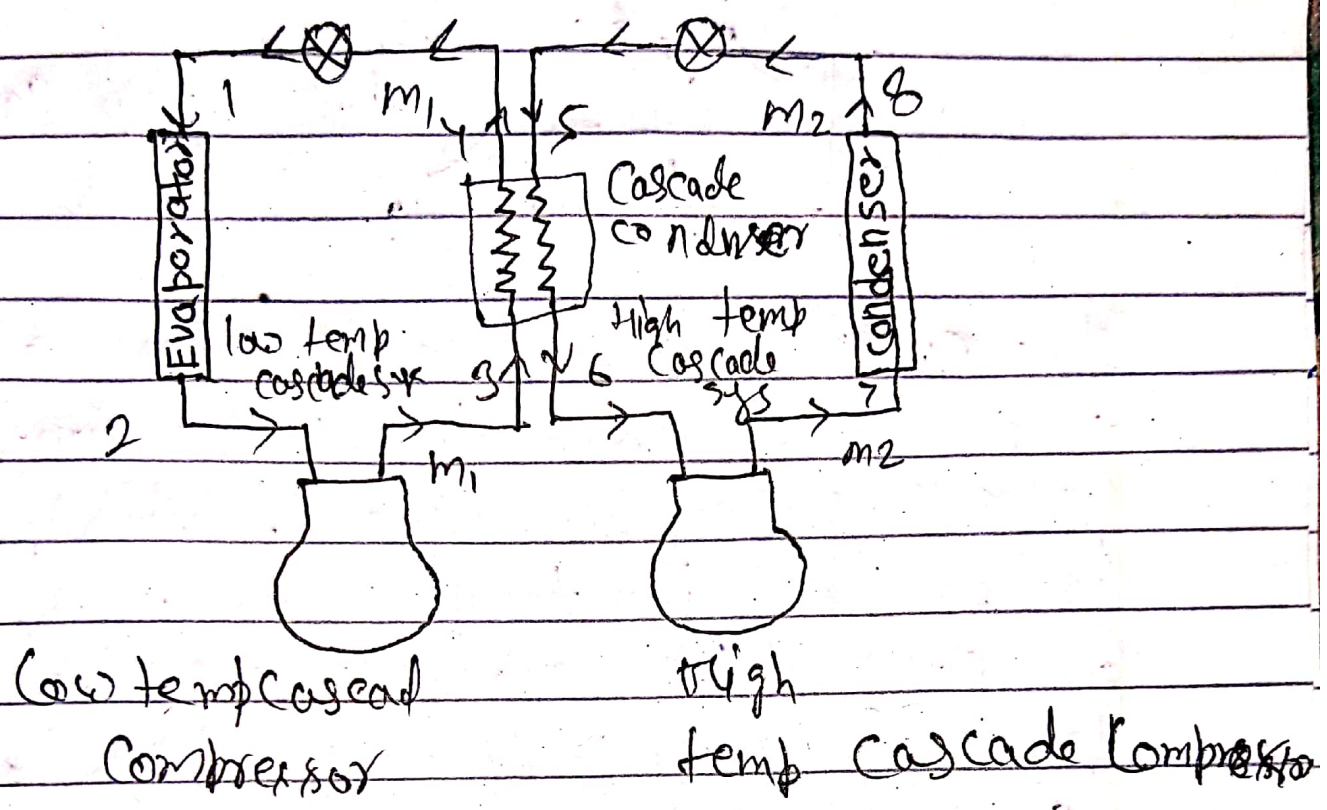 1
m1
4
5
m2
8
Evaporator
Cascade
condnser
Condenser
low temp
cascade sys
3
6
High temp
Cascade
sys
7
2
m1
m2
Low temp Cascad
Compressor
High
temp Cascade Compressor